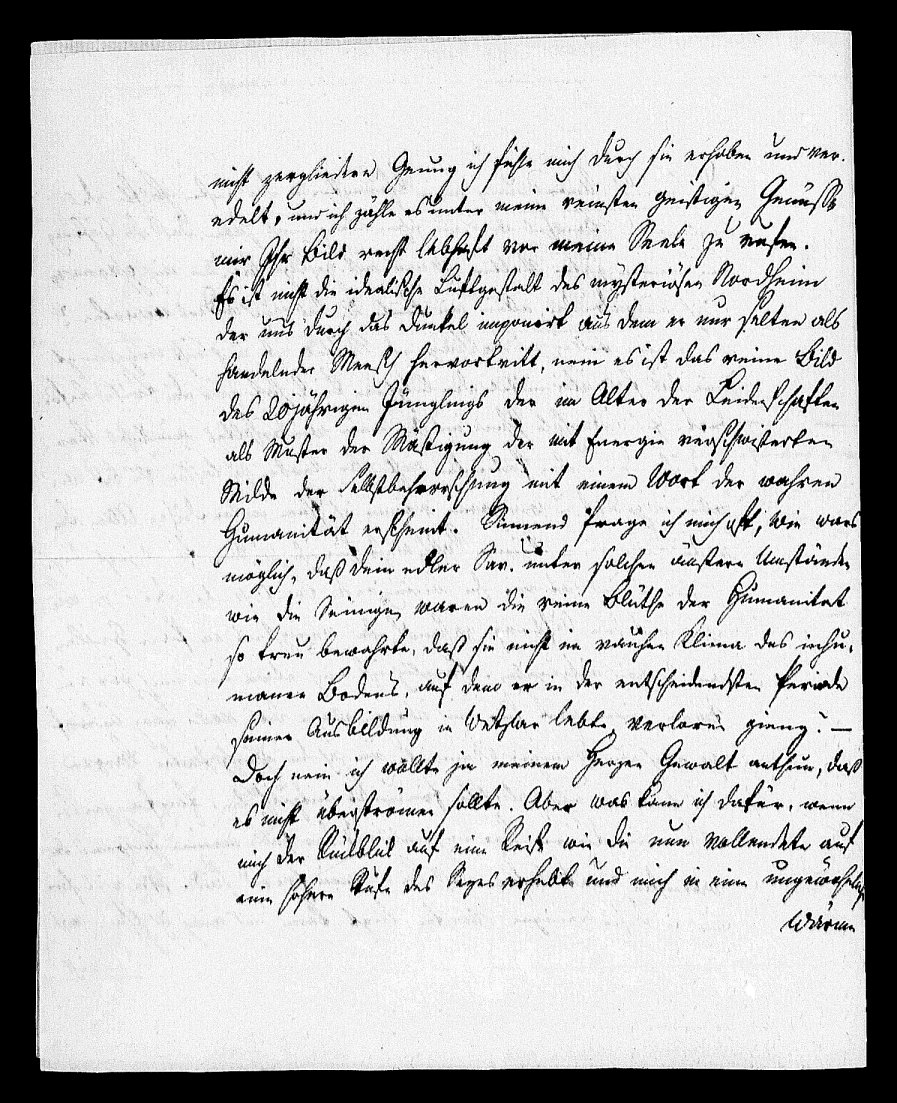 nicht zergliedere Genug ich fühle mich durch sie erhoben und ver-
edelt, und ich zähle es unter meine reinsten geistigen Genüsse
mir Ihr Bild recht lebhaft vor meine Seele zu rufen.
Es ist nicht die idealische Luftgestalt des mysteriösen Nordheim
der uns durch das Dunkel imponirt aus dem er nur selten als
handelnder Mensch hervortritt, nein es ist das reine Bild
des 20jährigen Jünglings der im Alter der Leidenschaften
als Muster der Mäßigung der mit Energie verschwisterten
Milde der Selbstbeherrschung mit einem Wort der wahren
Humanität erscheint. Sinnend frage ich mich oft, wie wars
möglich, daß dein edler Sav. unter solchen äussern Umständen
wie die Seinigen waren die reine Blüthe der Humanitat
so treu bewahrte, daß sie nicht im rauhen Klima des inhu-
manen Bodens, auf dem er in der entscheidendsten Periode
seiner Ausbildung in Wetzlar lebte verloren gieng? —
Doch nein ich wollte ja meinem Herzen Gewalt anthun, daß
es nicht überströmen sollte. Aber was kann ich dafür, wenn
mich der Rükblik auf eine Reise wie die nun vollendete auf
eine höhere Stufe des Seyns erhebt und mich in eine ungewöhnliche
Wärme